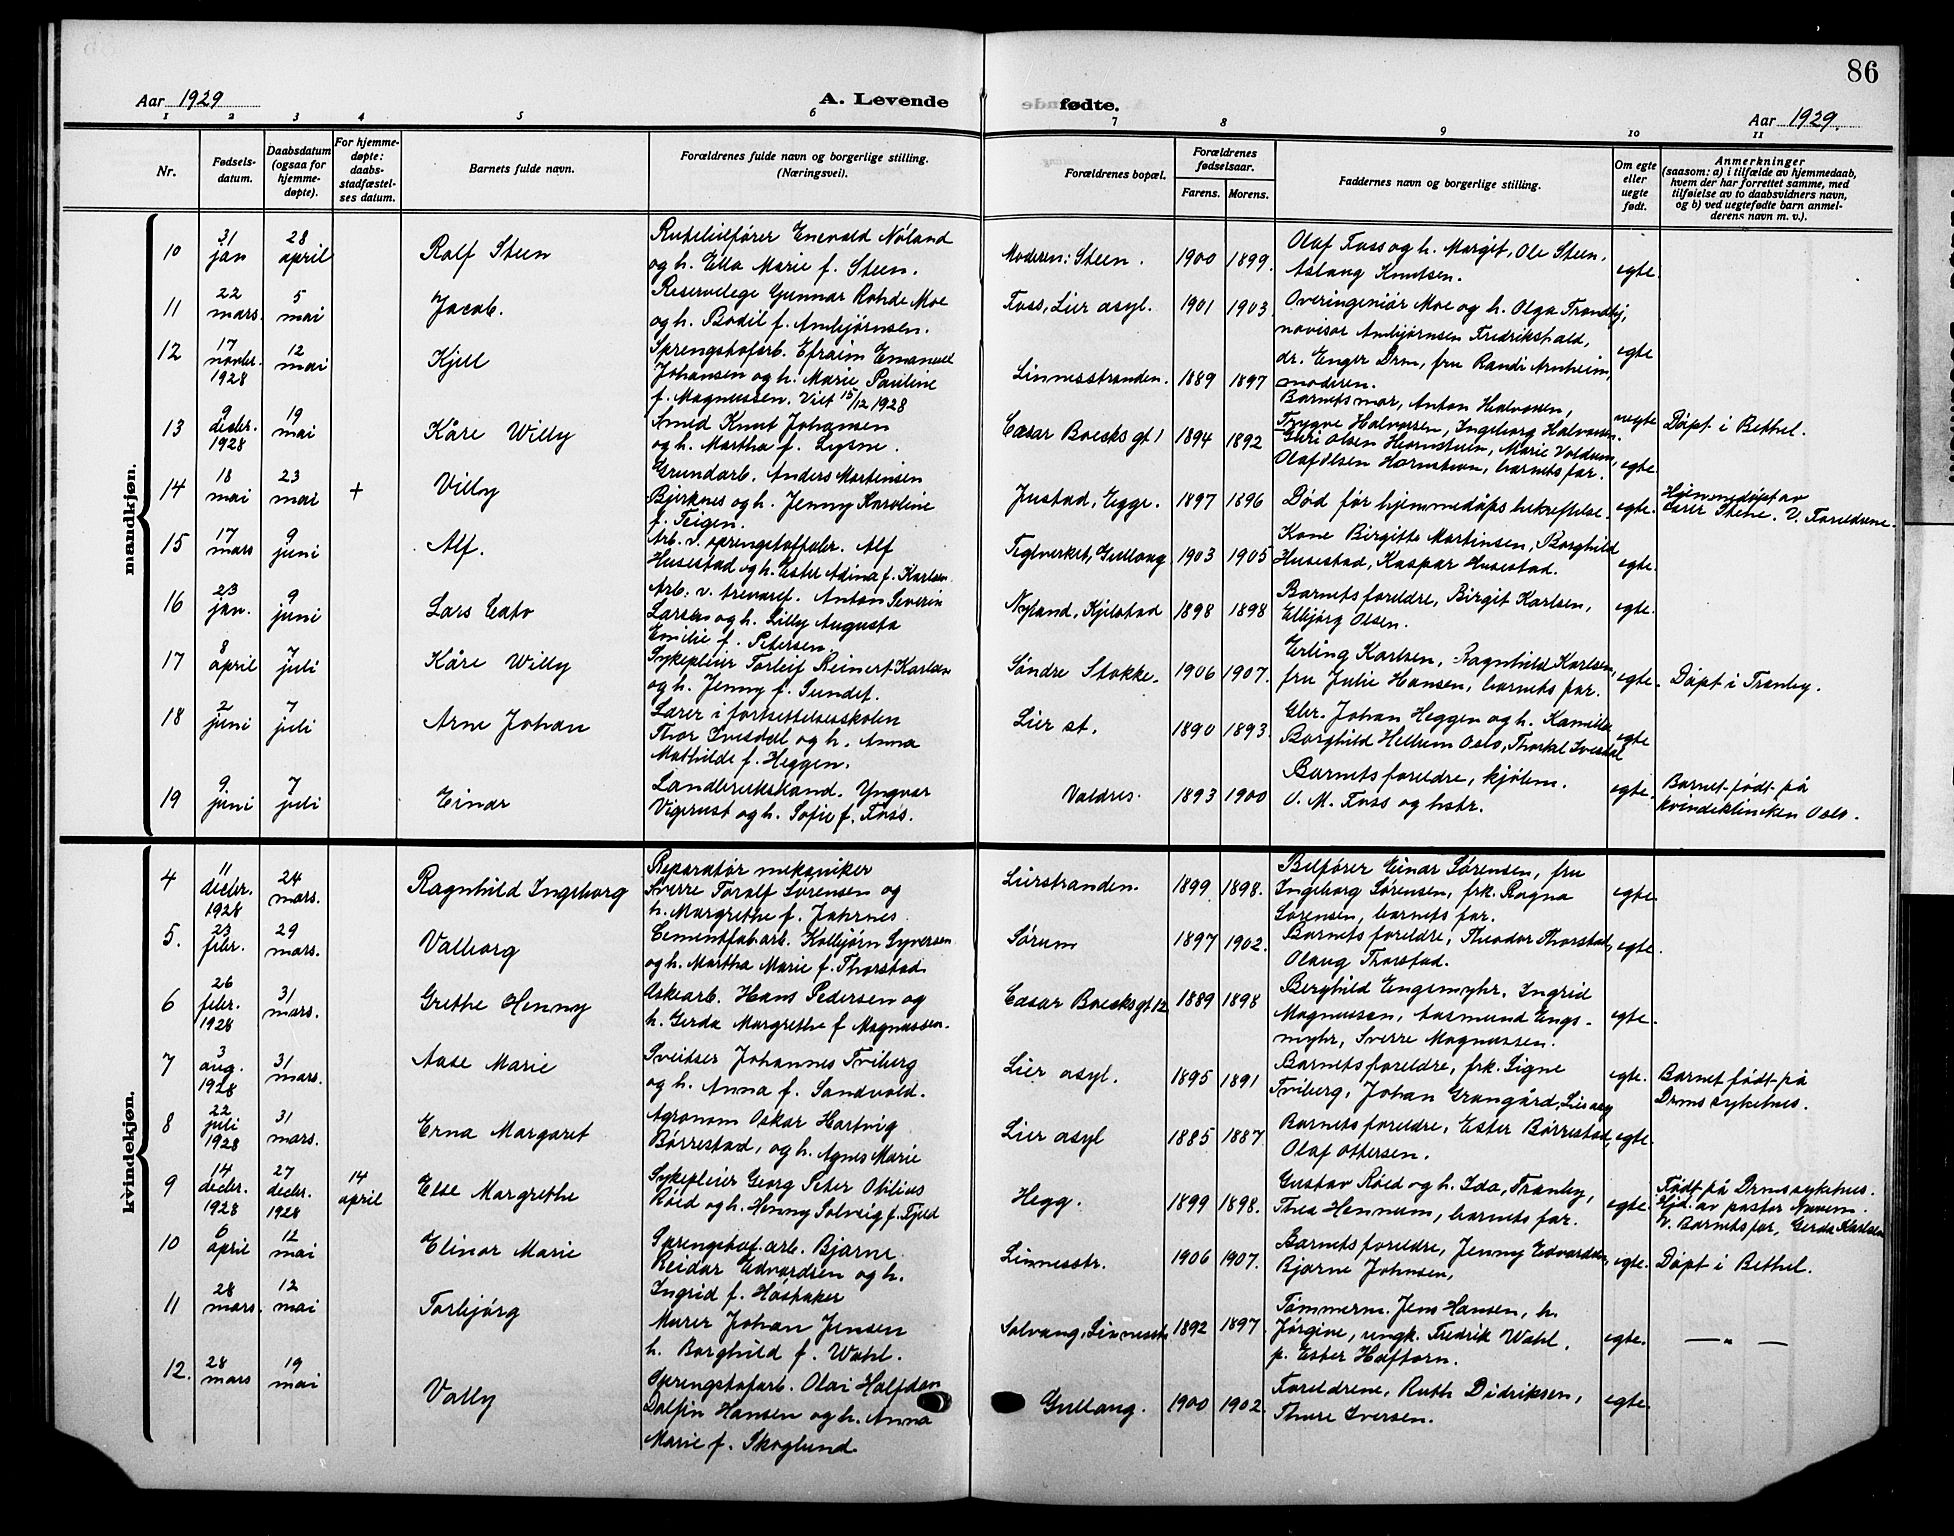 86
Aar 1929
A. Levende
fødte.
Aar 1929.
1 2 3 4 5 6 7 8 9 10 11
Nr.
Fødsels-
datum.
Daabsdatum
(ogsaa for
hjemme-
døpte).
For hjemme-
døpte:
daabs-
stadfæstel-
ses datum.
Barnets fulde navn.
Forældrenes fulde navn og borgerlige stilling.
(Næringsvei).
Forældrenes bopæl.
Forældrenes
fødselsaar.
Farens. Morens.
Faddernes navn og borgerlige stilling.
Om egte
eller
uegte
født.
Anmerkninger
(saasom: a) i tilfælde av hjemmedaab,
hvem der har forrettet samme, med
tilføielse av to daabsvidners navn,
og b) ved uegtefødte barn anmel-
derens navn m. v.).
mandkjøn.
10
31
jan
28
april
Rolf Steen
Enevald Nøland
og h. Ella Marie f. Steen.
Moderen: Steen.
1900 1899.
Olaf Foss og h. Margit, Ole Steen,
Aslaug Knutsen.
egte.
11
22
mars.
5
mai
Jacob.
Reservelege Gunnar Rohde Moe
og h. Bodil f. Ambjørnsen.
Foss, Lier asyl.
1901 1903
Overingeniør Moe og h. Olga Tranby,
Ambjørnsen Fredrikshald,
12
17
novbr.
1928
12
mai
Kjell
Sprengstofarb. Efraim Emanuel
Johansen og h. Marie Pauline
f. Magnussen. Viet 15/12 1928
Linnesstranden.
1889 1897
dr. Enger Drm, fru Randi Arnheim,
moderen.
egte
Barnets mor, Anton Halvorsen,
Trygve Halvorsen, Ingeborg Halvorsen.
uegte
13
9
decbr.
1928
19
mai
Kåre Willy
Smed Knut Johansen
og h. Martha f. Lysne.
Cæsar Boesks gt 1
1894 1892
Guri Olsen Hornstuen, Marie Voldum,
Olaf Olsen Hornstuen, barnets far.
egte.
Døpt i Bethel.
14
18
mai
23
mai
+
Villy
Grundarb. Anders Martinsen
Bjerknes og h. Jenny Karoline
f. Teigen.
Justad, Egge.
1897 1896
Død før hjemmedåps bekreftelse.
egte.
Hjemmedøpt av
lærer Stene. V. Foreldrene.
15
17
mars
9
juni
Alf.
Arb. v. sprengstoffabr. Alf
Husestad og h. Ester Adina f. Karlsen.
Teglverket, Gullaug
1903 1905
Kone Birgitte Martinsen, Borghild
Husestad, Kaspar Husestad.
egte.
16
23
jan.
9
juni
Lars Cato
Arb. v. trevaref. Anton Severin
Larsen og h. Lilly Augusta
Emilie f. Petersen.
Nyland, Kjelstad
1898 1898
Barnets foreldre, Birgit Karlsen,
Ellbjørg Olsen.
egte.
17
8
april
7
juli
Kåre Willy
Sykepleier Torleif Reinert Karlsen
og h. Jenny f. Sundet.
Søndre Stokke.
1906 1907.
Erling Karlsen, Ragnhild Karlsen,
fru Julie Hansen, barnets far.
egte.
Døpt i Tranby.
18
2
juni
7
juli
Arne Johan
Lærer i fortsettelsesskolen
Thor Ivesdal og h. Anna
Mathilde f. Heggen.
Lier st.
1890 1893.
Gbr. Johan Heggen og h. Kamilla
Borghild Hellum Oslo, Thorkel Ivesdal
egte
19
9
juni
7
juli
Einar
Landbrukskand. Yngvar
Vigerust og h. Sofie f. Foss.
Valdres.
1893 1900
Barnets foreldre, kjøbm.
O. M. Foss og hstr.
egte.
Barnet født på
kvindeklinikken Oslo.
kvindekjøn.
4
11
decbr.
1928
24
mars.
Ragnhild Ingeborg
Reparatør mekaniker
Sverre Toralf Sørensen og
h. Margrethe f. Jahrnes.
Lierstranden.
1899 1898.
Bilfører Einar Sørensen, fru
Ingeborg Sørensen, frk. Ragna
Sørensen, barnets far.
egte.
5.
23
febr.
29
mars.
Valborg
Cementfab.arb. Kolbjørn Syversen
og h. Martha Marie f. Thorstad.
Sørum
1897 1902.
Barnets foreldre, Theodor Thorstad,
Olaug Thorstad.
egte.
6
26
febr.
1928
31
mars.
Grethe Henny
Hans Pedersen og
h. Gerda Margrethe f Magnussen.
Cæsar Boesks gt. 12
1889 1898
Berghild Engsmyhr, Ingrid
Magnussen, Aasmund Engs-
myhr, Sverre Magnussen.
egte.
7
3
aug.
1928
31
mars.
Aase Marie
Sveitser Johannes Tviberg
og h. Anna f. Sandvold.
Lier asyl.
1895 1891
Barnets foreldre, frk. Signe
Tviberg, Johan Grangård, Lier asyl
egte.
Barnet født på
Drms sykehus.
8
22
juli
1928
31
mars.
Erna Margaret
Agronom Oskar Hartvig
Børrestad, og h. Agnes Marie
Lier asyl
1885 1887
Barnets foreldre, Ester Børrestad,
Olaf Ottersen.
egte.
9
14
decbr.
1928
27
decbr.
1928
14
april
Else Margrethe
Sykepleier Georg Peter Obilius
Røed og h. Henny Solveig f. Fjeld
Hegg.
1899 1898.
Gustav Røed og h. Ida, Tranby,
Thea Hennum, barnets far.
egte.
Født på Drms sykehus.
Hjd. av pastor
v. Barnets far, Gerda Karlsen
10
6
april
12
mai
Elinor Marie
Sprengstof.arb. Bjarne
Reidar Edvardsen og h.
Ingrid f. Høshaker
Linnesstr.
1906 1907.
Barnets foreldre, Jenny Edvardsen,
Bjarne Johnsen,
egte.
Døpt i Bethel.
11
28
mars.
12
mai
Torbjørg
Murer Johan Jensen
h. Borghild f. Wahl.
Solvang, Linnesstr.
1892 1897.
Tømmerm. Jens Hansen, h.
Jørgine, ungk. Fredrik Wahl,
p. Ester Haftorn.
egte.
— " —
12.
28
mars
19
mai
Vally
Sprengstofarb. Olai Halfdan
Dalfin Hansen og h. Anna
Marie f. Skoglund.
Gullaug.
1900 1902.
Foreldrene, Ruth Didriksen,
Thure Iversen.
egte.